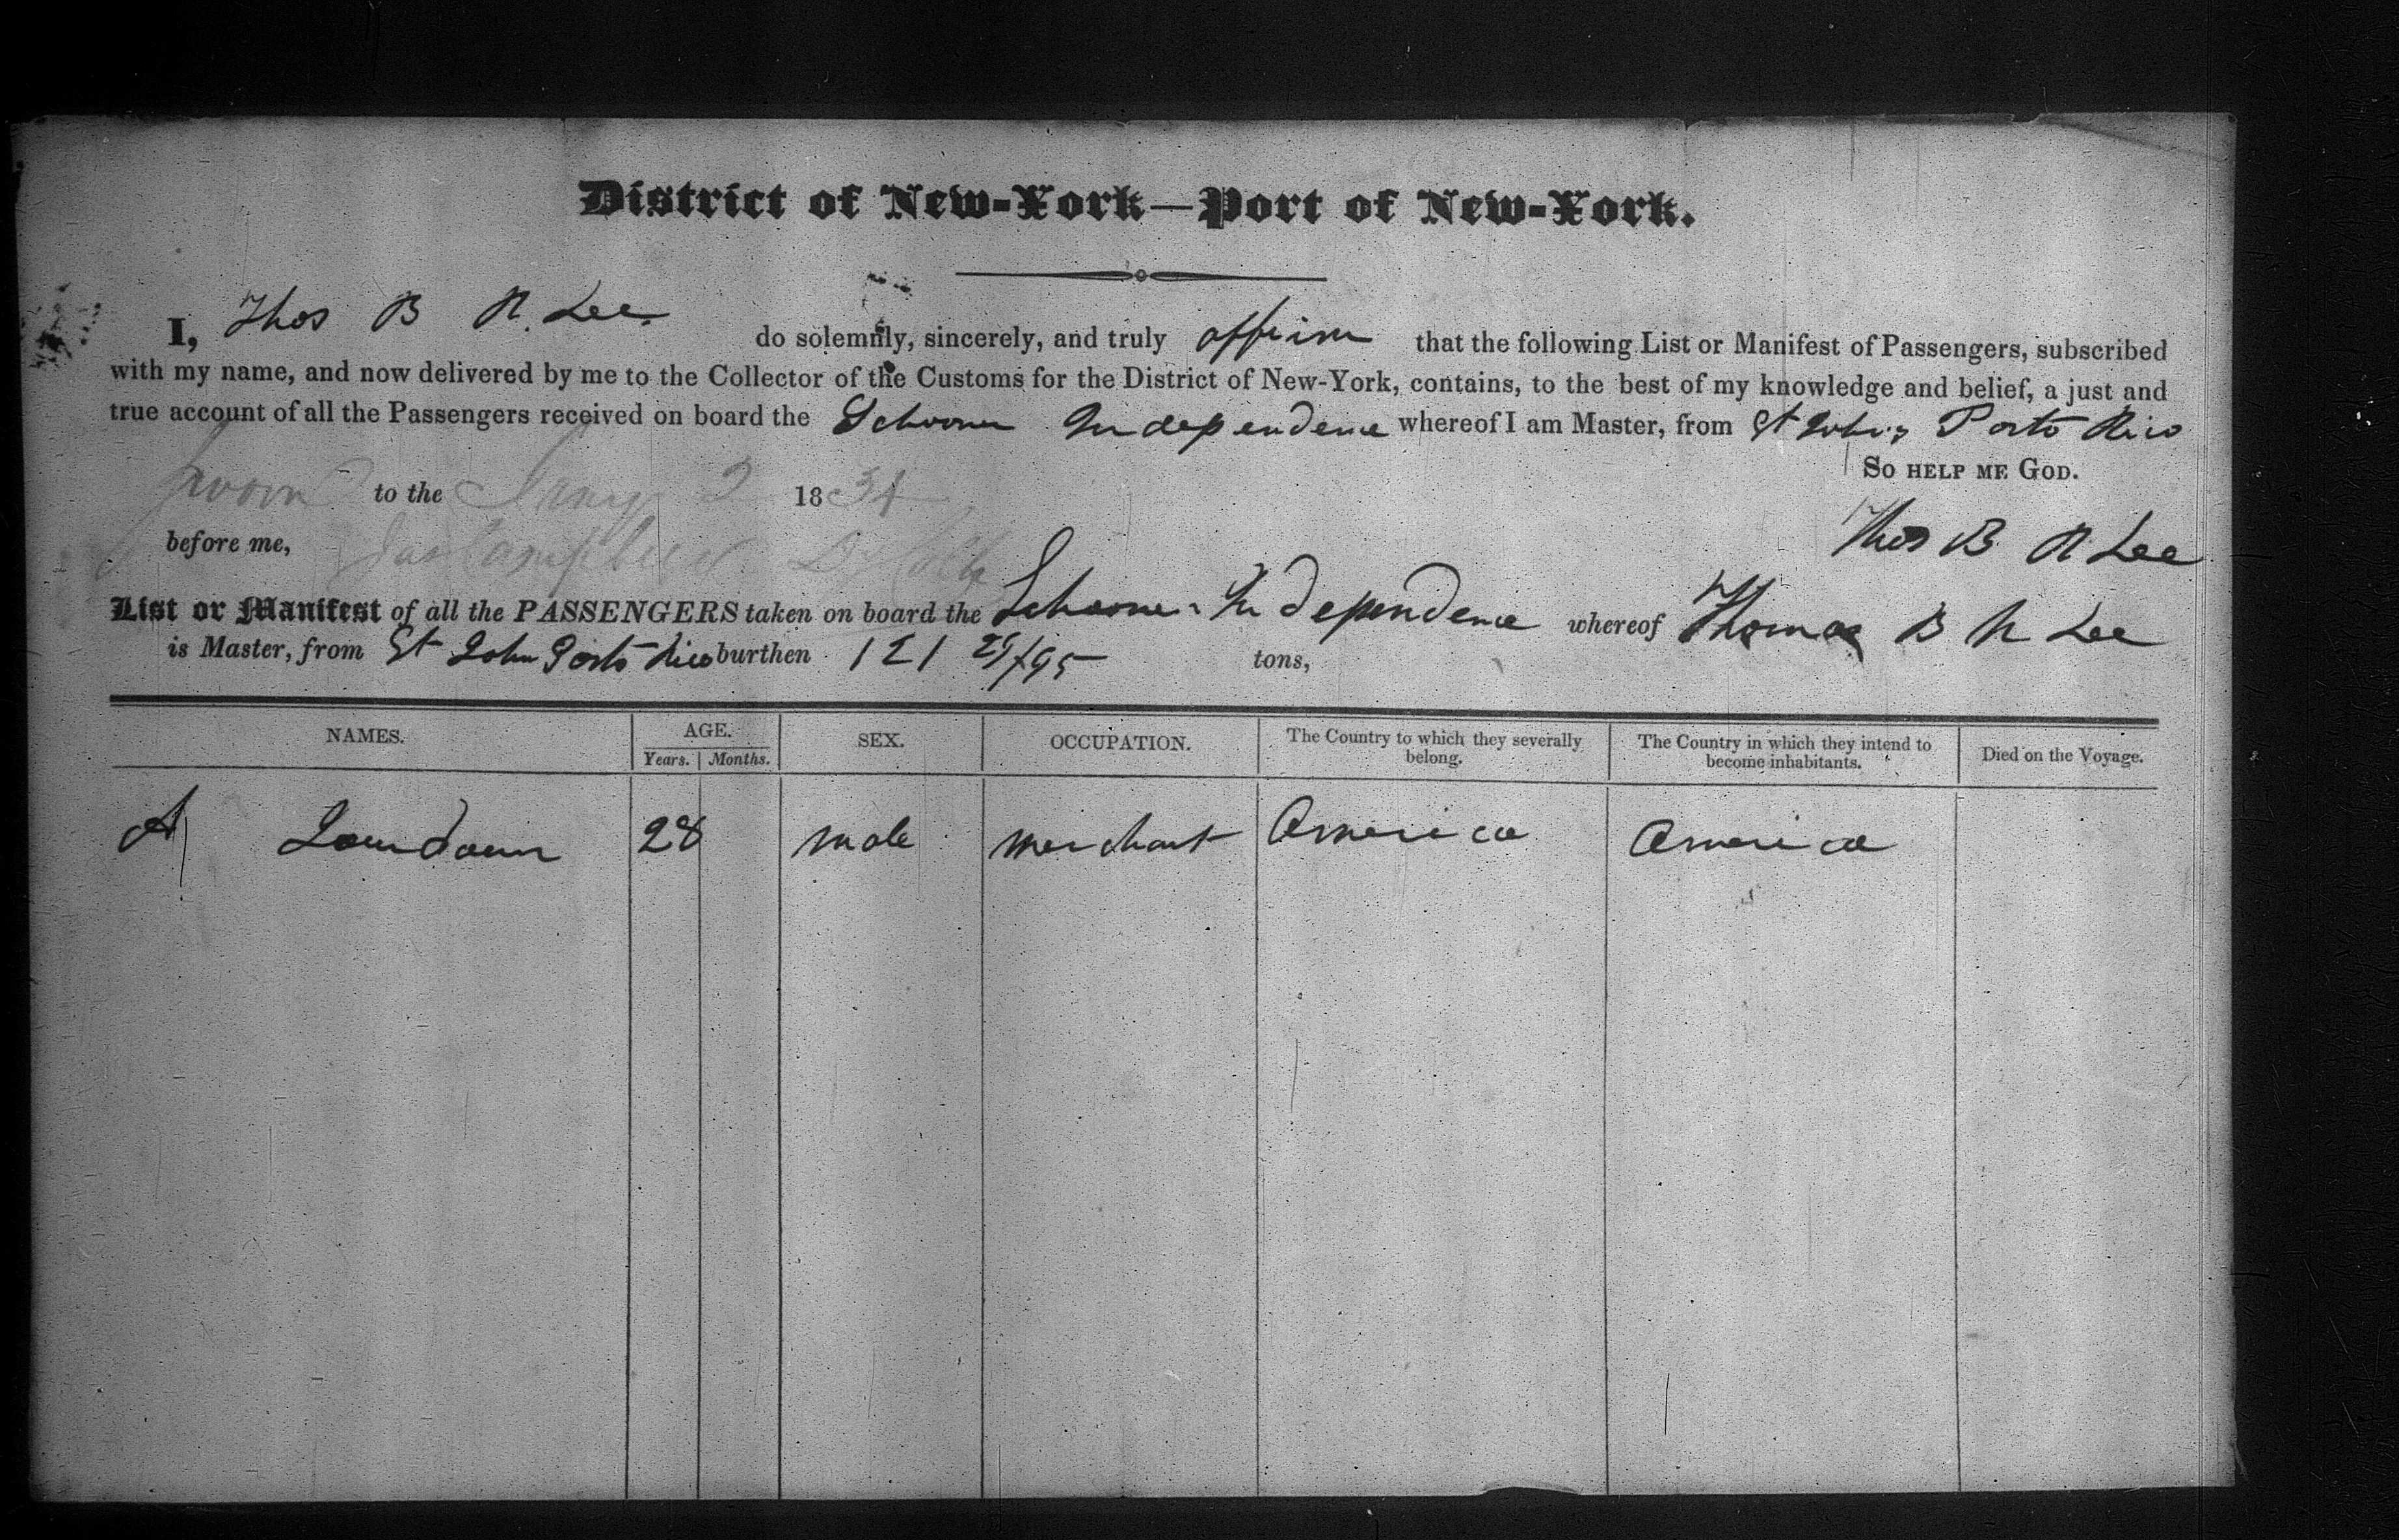 District of New-York—Port of New-York.
I, Thos B N. Lee do solemnly, sincerely, and truly affirm that the following List or Manifest of Passengers, subscribed
with my name, and now delivered by me to the Collector of the Customs for the District of New-York, contains, to the best of my knowledge and belief, a just and
true account of all the Passengers received on board the Schooner Independence whereof I am Master, from St Johns Porto Rico
So help me God.
Sworn to the Jany 2 183
Thos B N Lee
before me, Jas Campbell
List or Manifest of all the PASSENGERS taken on board the Schooner Independence whereof Thomas B N Lee
is Master, from St John Porto Rico burthen 121 /95 tons,
NAMES. AGE. SEX. OCCUPATION. The Country to which they severally belong. The Country in which they intend to become inhabitants. Died on the Voyage.
Years. Months.
A 28 male merchant America America